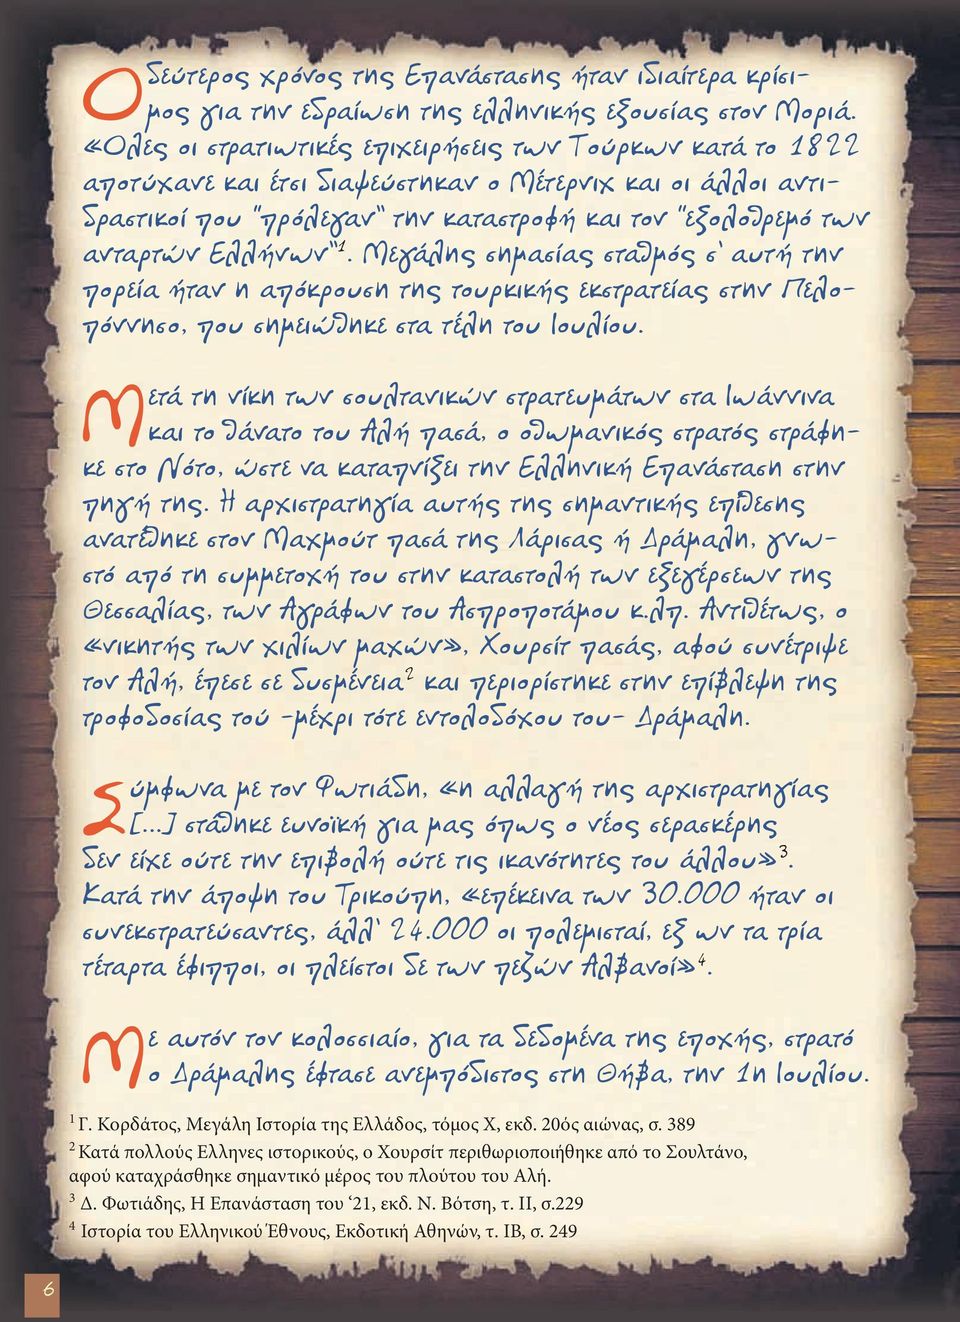 Ο δεύτερος χρόνος της Επανάστασης ήταν ιδιαίτερα κρίσι-
μος για την εδραίωση της ελληνικής εξουσίας στον Μοριά.
«Ολες οι στρατιωτικές επιχειρήσεις των Τούρκων κατά το 1822
αποτύχανε και έτσι διαψεύστηκαν ο Μέτερνιχ και οι άλλοι αντι-
δραστικοί που "πρόλεγαν" την καταστροφή και τον "εξολοθρεμό των
ανταρτών Ελλήνων"1. Μεγάλης σημασίας σταθμός σ' αυτή την
πορεία ήταν η απόκρουση της τουρκικής εκστρατείας στην Πελο-
πόννησο, που σημειώθηκε στα τέλη του Ιουλίου.
Μετά τη νίκη των σουλτανικών στρατευμάτων στα Ιωάννινα
και το θάνατο του Αλή πασά, ο οθωμανικός στρατός στράφη-
κε στο Νότο, ώστε να καταπνίξει την Ελληνική Επανάσταση στην
πηγή της. Η αρχιστρατηγία αυτής της σημαντικής επίθεσης
ανατέθηκε στον Μαχμούτ πασά της Λάρισας ή Δράμαλη, γνω-
στό από τη συμμετοχή του στην καταστολή των εξεγέρσεων της
Θεσσαλίας, των Αγράφων του Ασπροποτάμου κ.λπ. Αντιθέτως, ο
«νικητής των χιλίων μαχών», Χουρσίτ πασάς, αφού συνέτριψε
τον Αλή, έπεσε σε δυσμένεια2 και περιορίστηκε στην επίβλεψη της
τροφοδοσίας τού -μέχρι τότε εντολοδόχου του- Δράμαλη.
Σύμφωνα με τον Φωτιάδη, «η αλλαγή της αρχιστρατηγίας
[...] στάθηκε ευνοϊκή για μας όπως ο νέος σερασκέρης
δεν είχε ούτε την επιβολή ούτε τις ικανότητες του άλλου»3.
Κατά την άποψη του Τρικούπη, «επέκεινα των 30.000 ήταν οι
συνεκστρατεύσαντες, άλλ' 24.000 οι πολεμισταί, εξ ων τα τρία
τέταρτα έφιπποι, οι πλείστοι δε των πεζών Αλβανοί»4.
Με αυτόν τον κολοσσιαίο, για τα δεδομένα της εποχής, στρατό
ο Δράμαλης έφτασε ανεμπόδιστος στη Θήβα, την 1η Ιουλίου.
1 Γ. Κορδάτος, Μεγάλη Ιστορία της Ελλάδος, τόμος Χ, εκδ. 20ός αιώνας, σ. 389
2 Κατά πολλούς Ελληνες ιστορικούς, ο Χουρσίτ περιθωριοποιήθηκε από το Σουλτάνο,
αφού καταχράσθηκε σημαντικό μέρος του πλούτου του Αλή.
3 Δ. Φωτιάδης, Η Επανάσταση του '21, εκδ. Ν. Βότση, τ. ΙΙ, σ.229
4 Ιστορία του Ελληνικού Έθνους, Εκδοτική Αθηνών, τ. ΙΒ, σ. 249
6